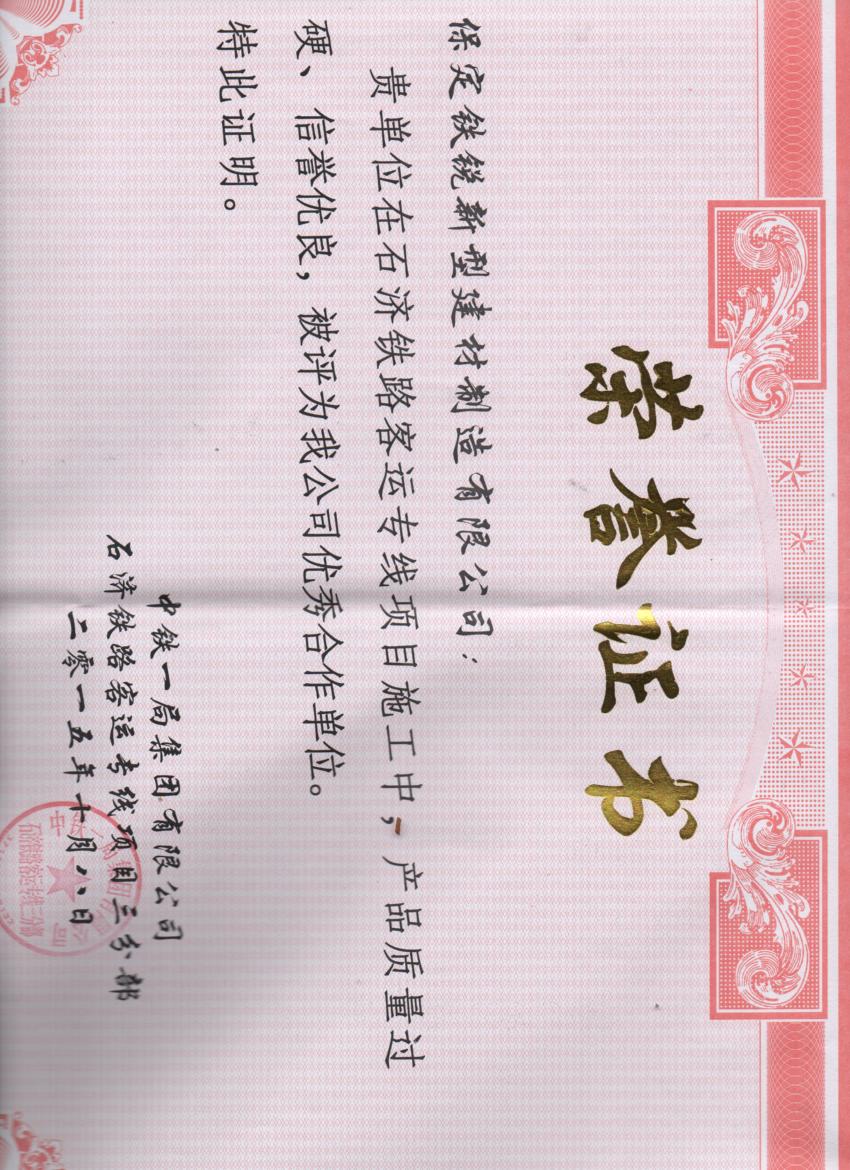 荣誉证书
保定铁锐新型建材制造有限公司：
贵单位在石济铁路客运专线项目施工中，产品质量过
硬、信誉优良，被评为我公司优秀合作单位。
特此证明。
中铁一局集团有限公司
石济铁路客运专线项目三分部
二零一五年十月八日